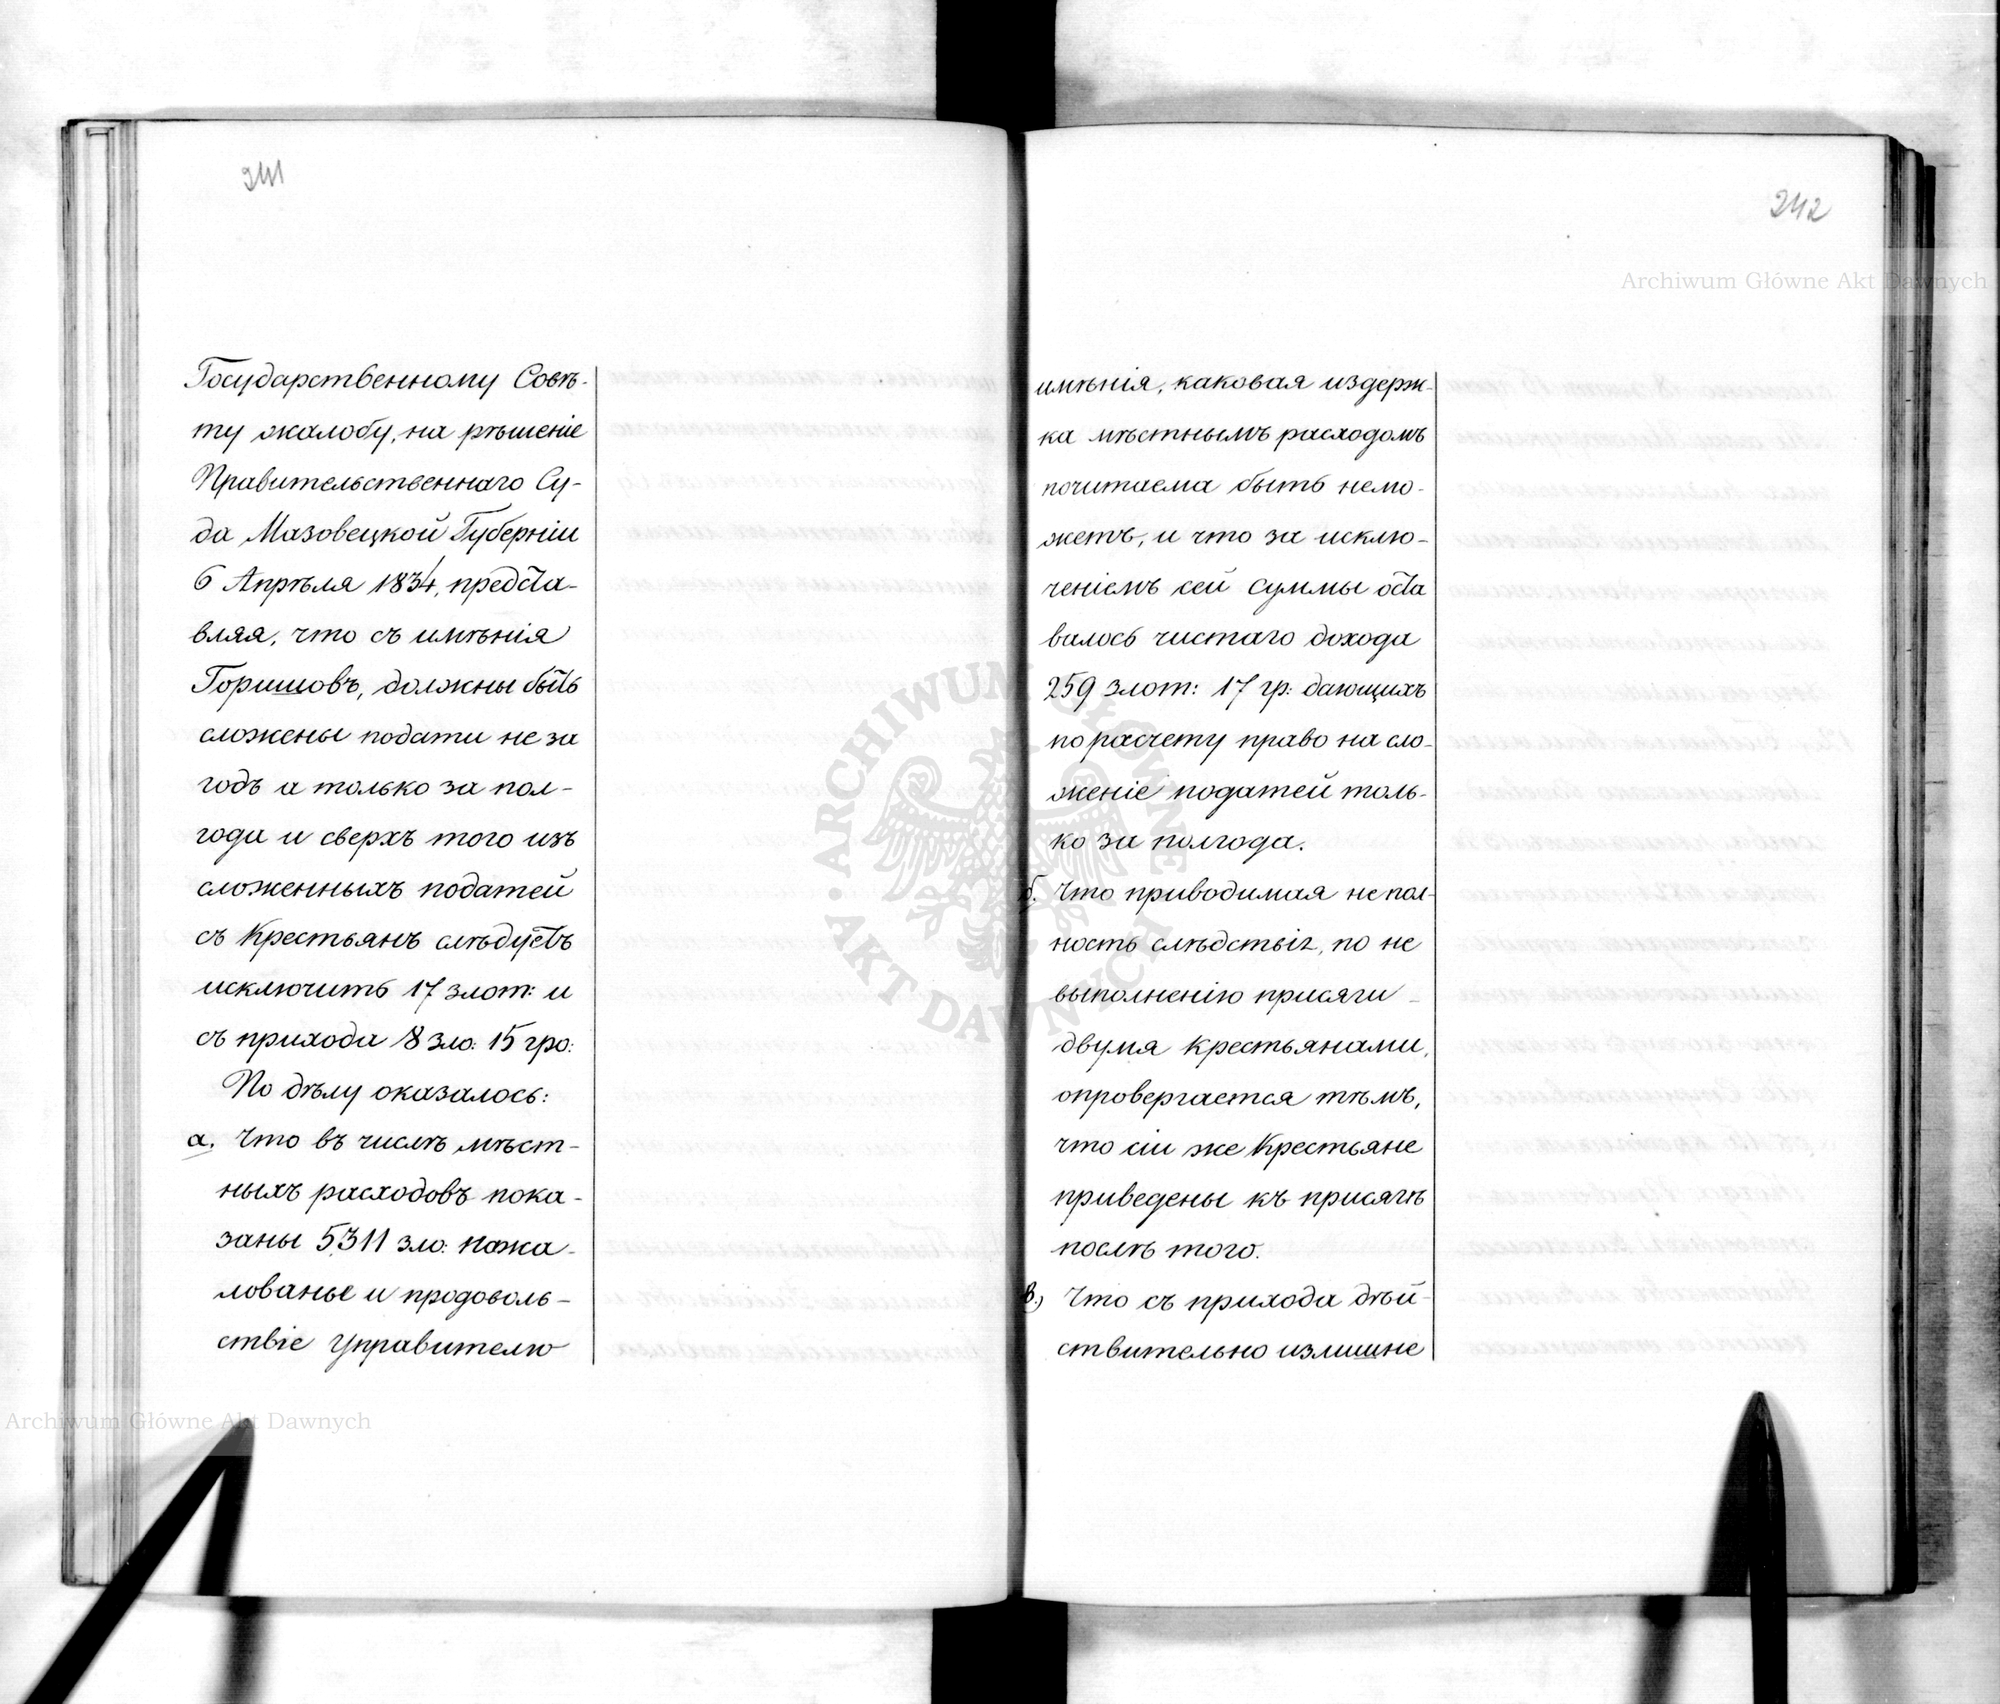 241
Государственному Совѣ-
ту жалобу, на рѣшеніе
Правительственнаго Су-
да Мазовецкой Губерніи
6 Апрѣля 1834, предста-
вляя, что съ имѣнія
Горишовъ, должны быть
сложены подати не за
годъ а только за пол-
года и сверхъ того изъ
сложенныхъ податей
съ Крестьянъ слѣдуетъ
исключить 17 злот: и
съ прихода 8 зло: 15 гро:
По дѣлу оказалось:
а. Что въ числѣ мѣст-
ныхъ расходовъ пока-
заны 5311 зло: на жа-
лованье и продоволь-
ствіе Управителю
242
имѣнія, каковая издерж-
ка мѣстнымъ расходомъ
почитаема быть немо-
жетъ, и что за исклю-
ченіемъ сей суммы оста
валось чистаго дохода
259 злот: 17 гр: дающихъ
по расчету право на сло-
женіе податей толь-
ко за полгода.
б. Что приводимая не пол-
ность слѣдствія, по не
выполненію присяги
двумя крестьянами,
опровергается тѣмъ,
что сіи же Крестьяне
приведены къ присягѣ
послѣ того.
в.) Что съ прихода дѣй-
ствительно излишне
Archiwum Główne Akt Dawnych
Archiwum Główne Akt Dawnych
ARCHIWUM GŁÓWNE · AKT DAWNYCH ·